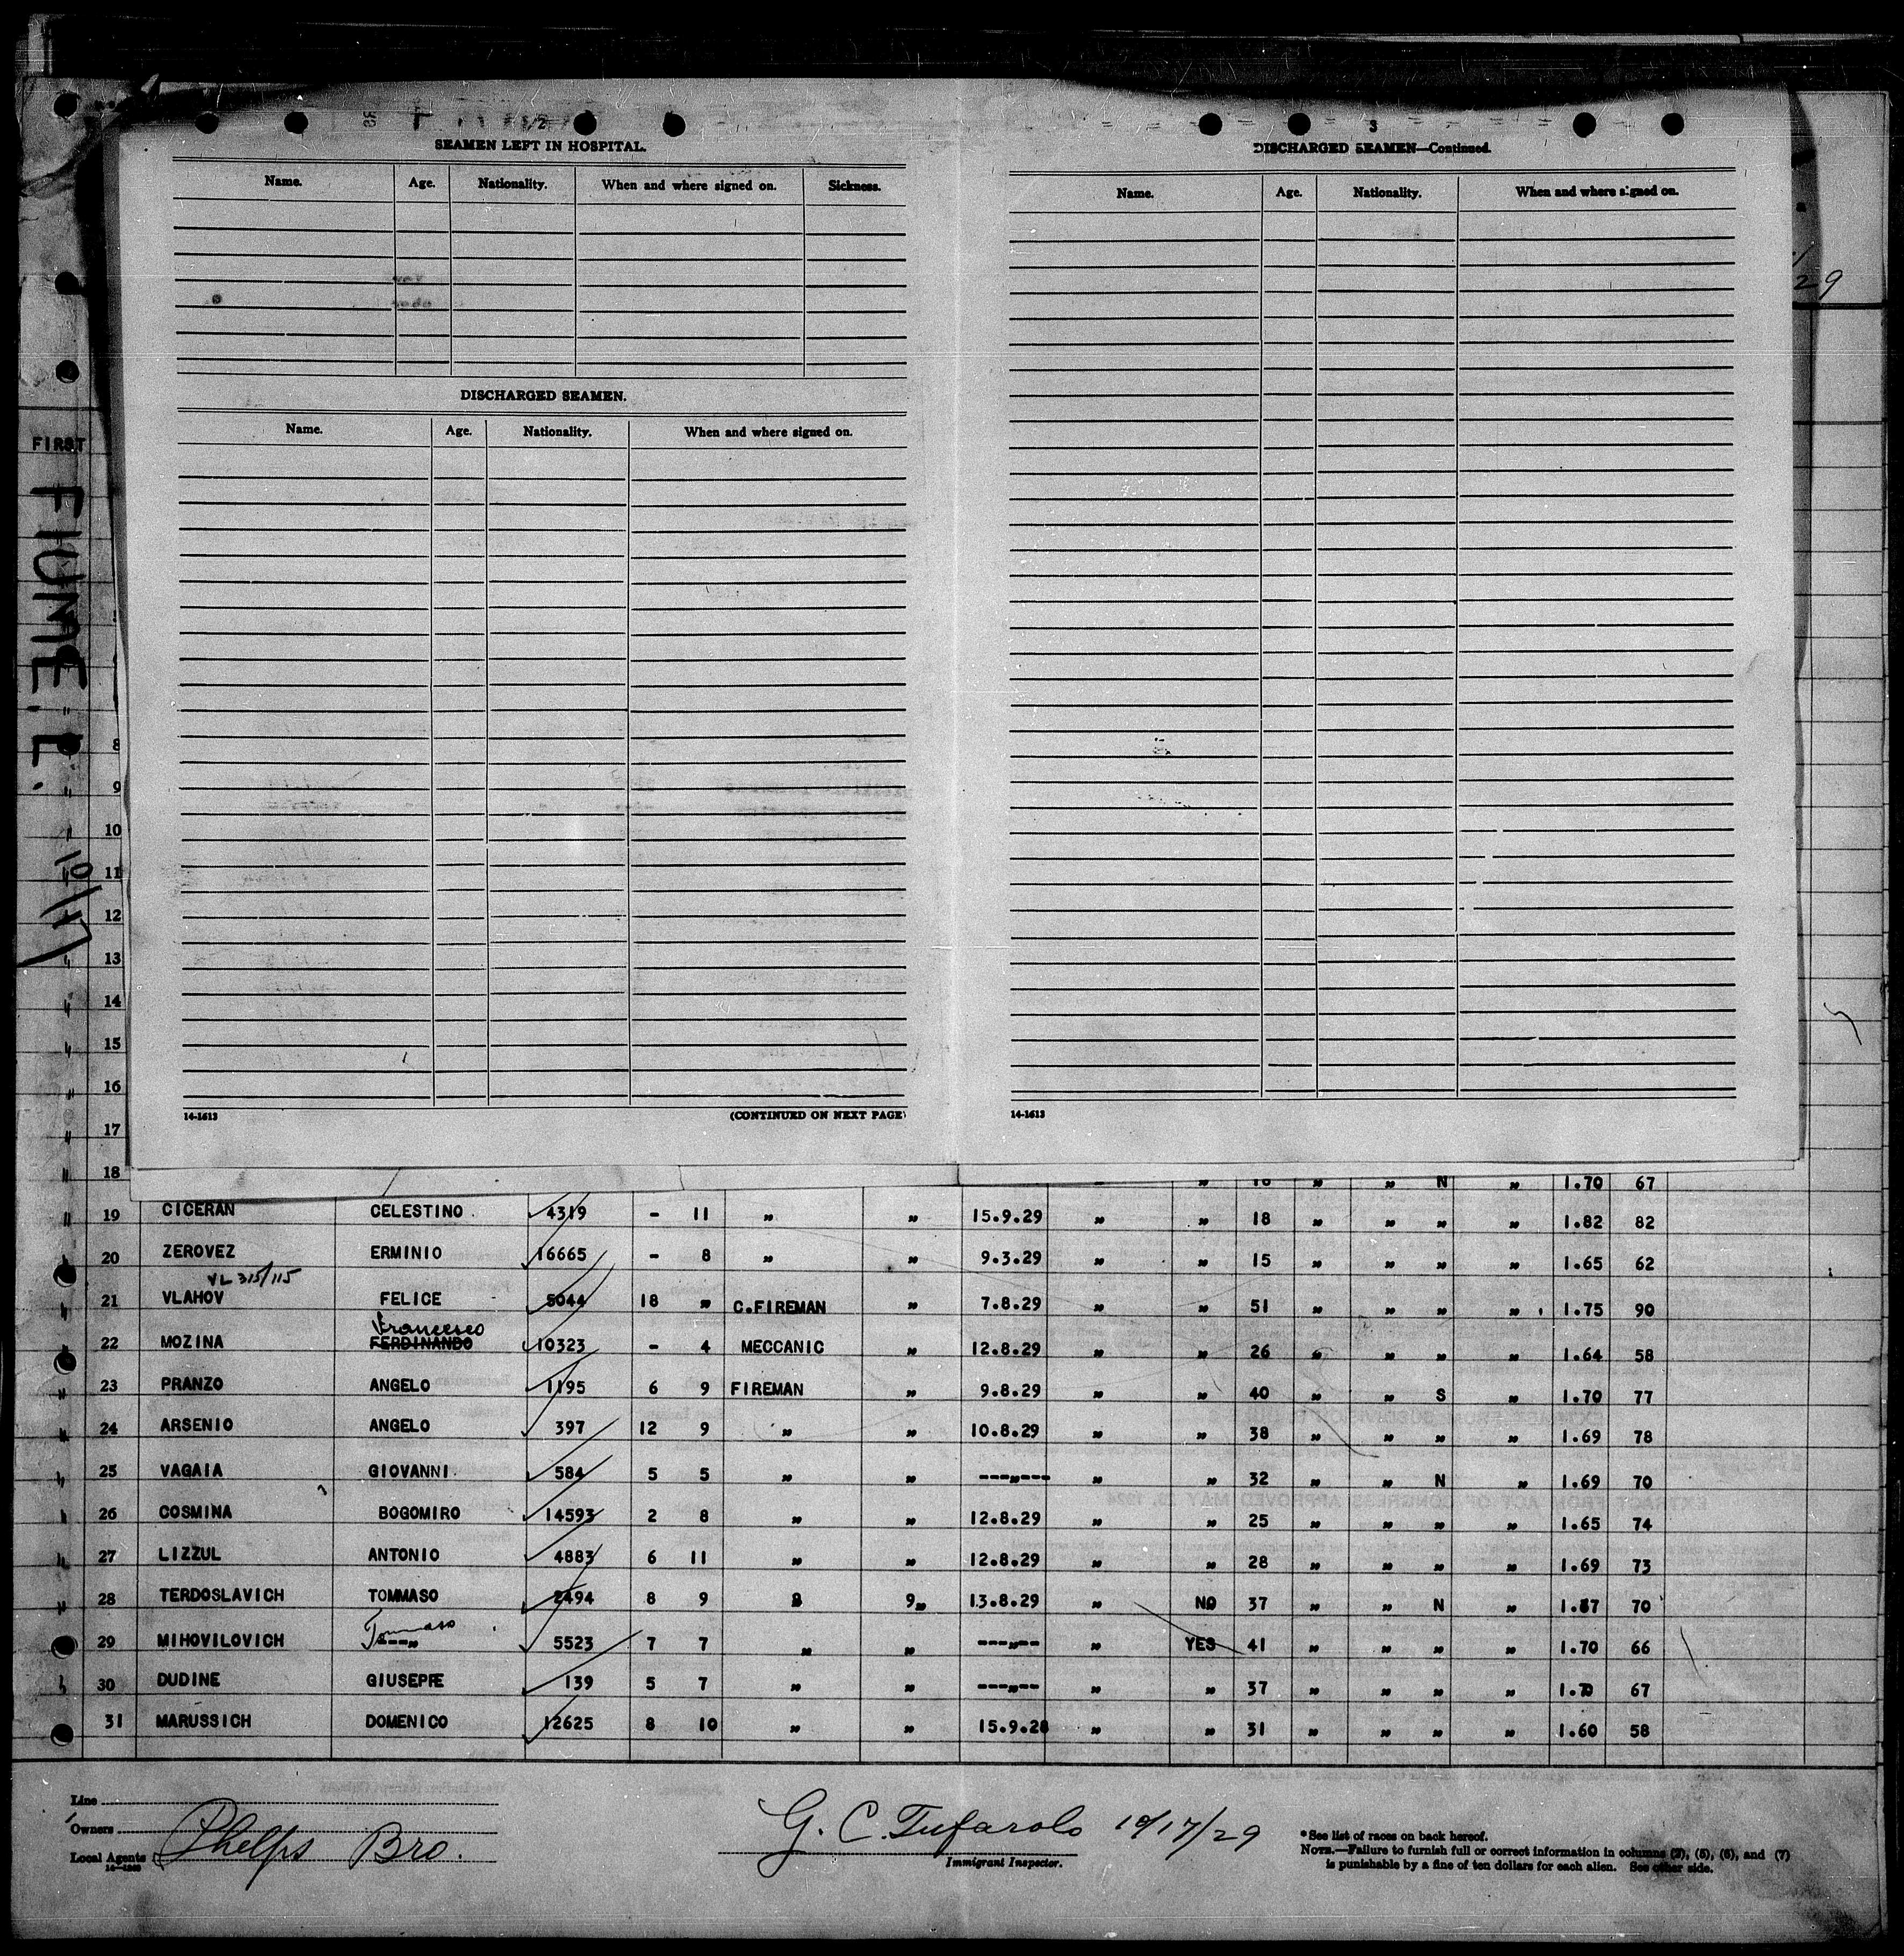 2
SEAMEN LEFT IN HOSPITAL.
Name. Age. Nationality. When and where signed on. Sickness.
DISCHARGED SEAMEN.
Name. Age. Nationality. When and where signed on.
14-1613 (CONTINUED ON NEXT PAGE)
3
DISCHARGED SEAMEN—Continued.
Name. Age. Nationality. When and where signed on.
14-1613
29
FIRST
FIUME. L. 10/17
8
9
10
11
12
13
14
15
16
17
18 „ „ N „ 1.70 67
19 CICERAN CELESTINO. 4319 - 11 „ „ 15.9.29 „ „ 18 „ „ „ „ 1.82 82
20 ZEROVEZ ERMINIO 16665 - 8 „ „ 9.3.29 „ „ 15 „ „ „ „ 1.65 62
VL 315/115
21 VLAHOV FELICE 5044 18 „ C.FIREMAN „ 7.8.29 „ „ 51 „ „ „ „ 1.75 90
Francesco
22 MOZINA FERDINANDO 10323 - 4 MECCANIC „ 12.8.29 „ „ 26 „ „ „ „ 1.64 58
23 PRANZO ANGELO 1195 6 9 FIREMAN „ 9.8.29 „ „ 40 „ „ S „ 1.70 77
24 ARSENIO ANGELO 397 12 9 „ „ 10.8.29 „ „ 38 „ „ „ „ 1.69 78
25 VAGAIA GIOVANNI. 584 5 5 „ „ ---„--- „ „ 32 „ „ N „ 1.69 70
26 COSMINA BOGOMIRO 14593 2 8 „ „ 12.8.29 „ „ 25 „ „ „ „ 1.65 74
27 LIZZUL ANTONIO 4883 6 11 „ „ 12.8.29 „ „ 28 „ „ „ „ 1.69 73
28 TERDOSLAVICH TOMMASO 2494 8 9 9 9„ 13.8.29 „ NO 37 „ „ N „ 1.67 70
Tommaso
29 MIHOVILOVICH ---„ 5523 7 7 „ „ ---„--- „ YES 41 „ „ „ „ 1.70 66
30 DUDINE GIUSEPPE 139 5 7 „ „ ---„--- „ „ 37 „ „ „ „ 1.70 67
31 MARUSSICH DOMENICO 12625 8 10 „ „ 15.9.28 „ „ 31 „ „ „ „ 1.60 58
Line
Owners
Local Agents Phelps Bro.
14—1240
G. C. Tufarolo 10/17/29
Immigrant Inspector.
* See list of races on back hereof.
NOTE.—Failure to furnish full or correct information in columns (3), (5), (6), and (7)
is punishable by a fine of ten dollars for each alien. See other side.